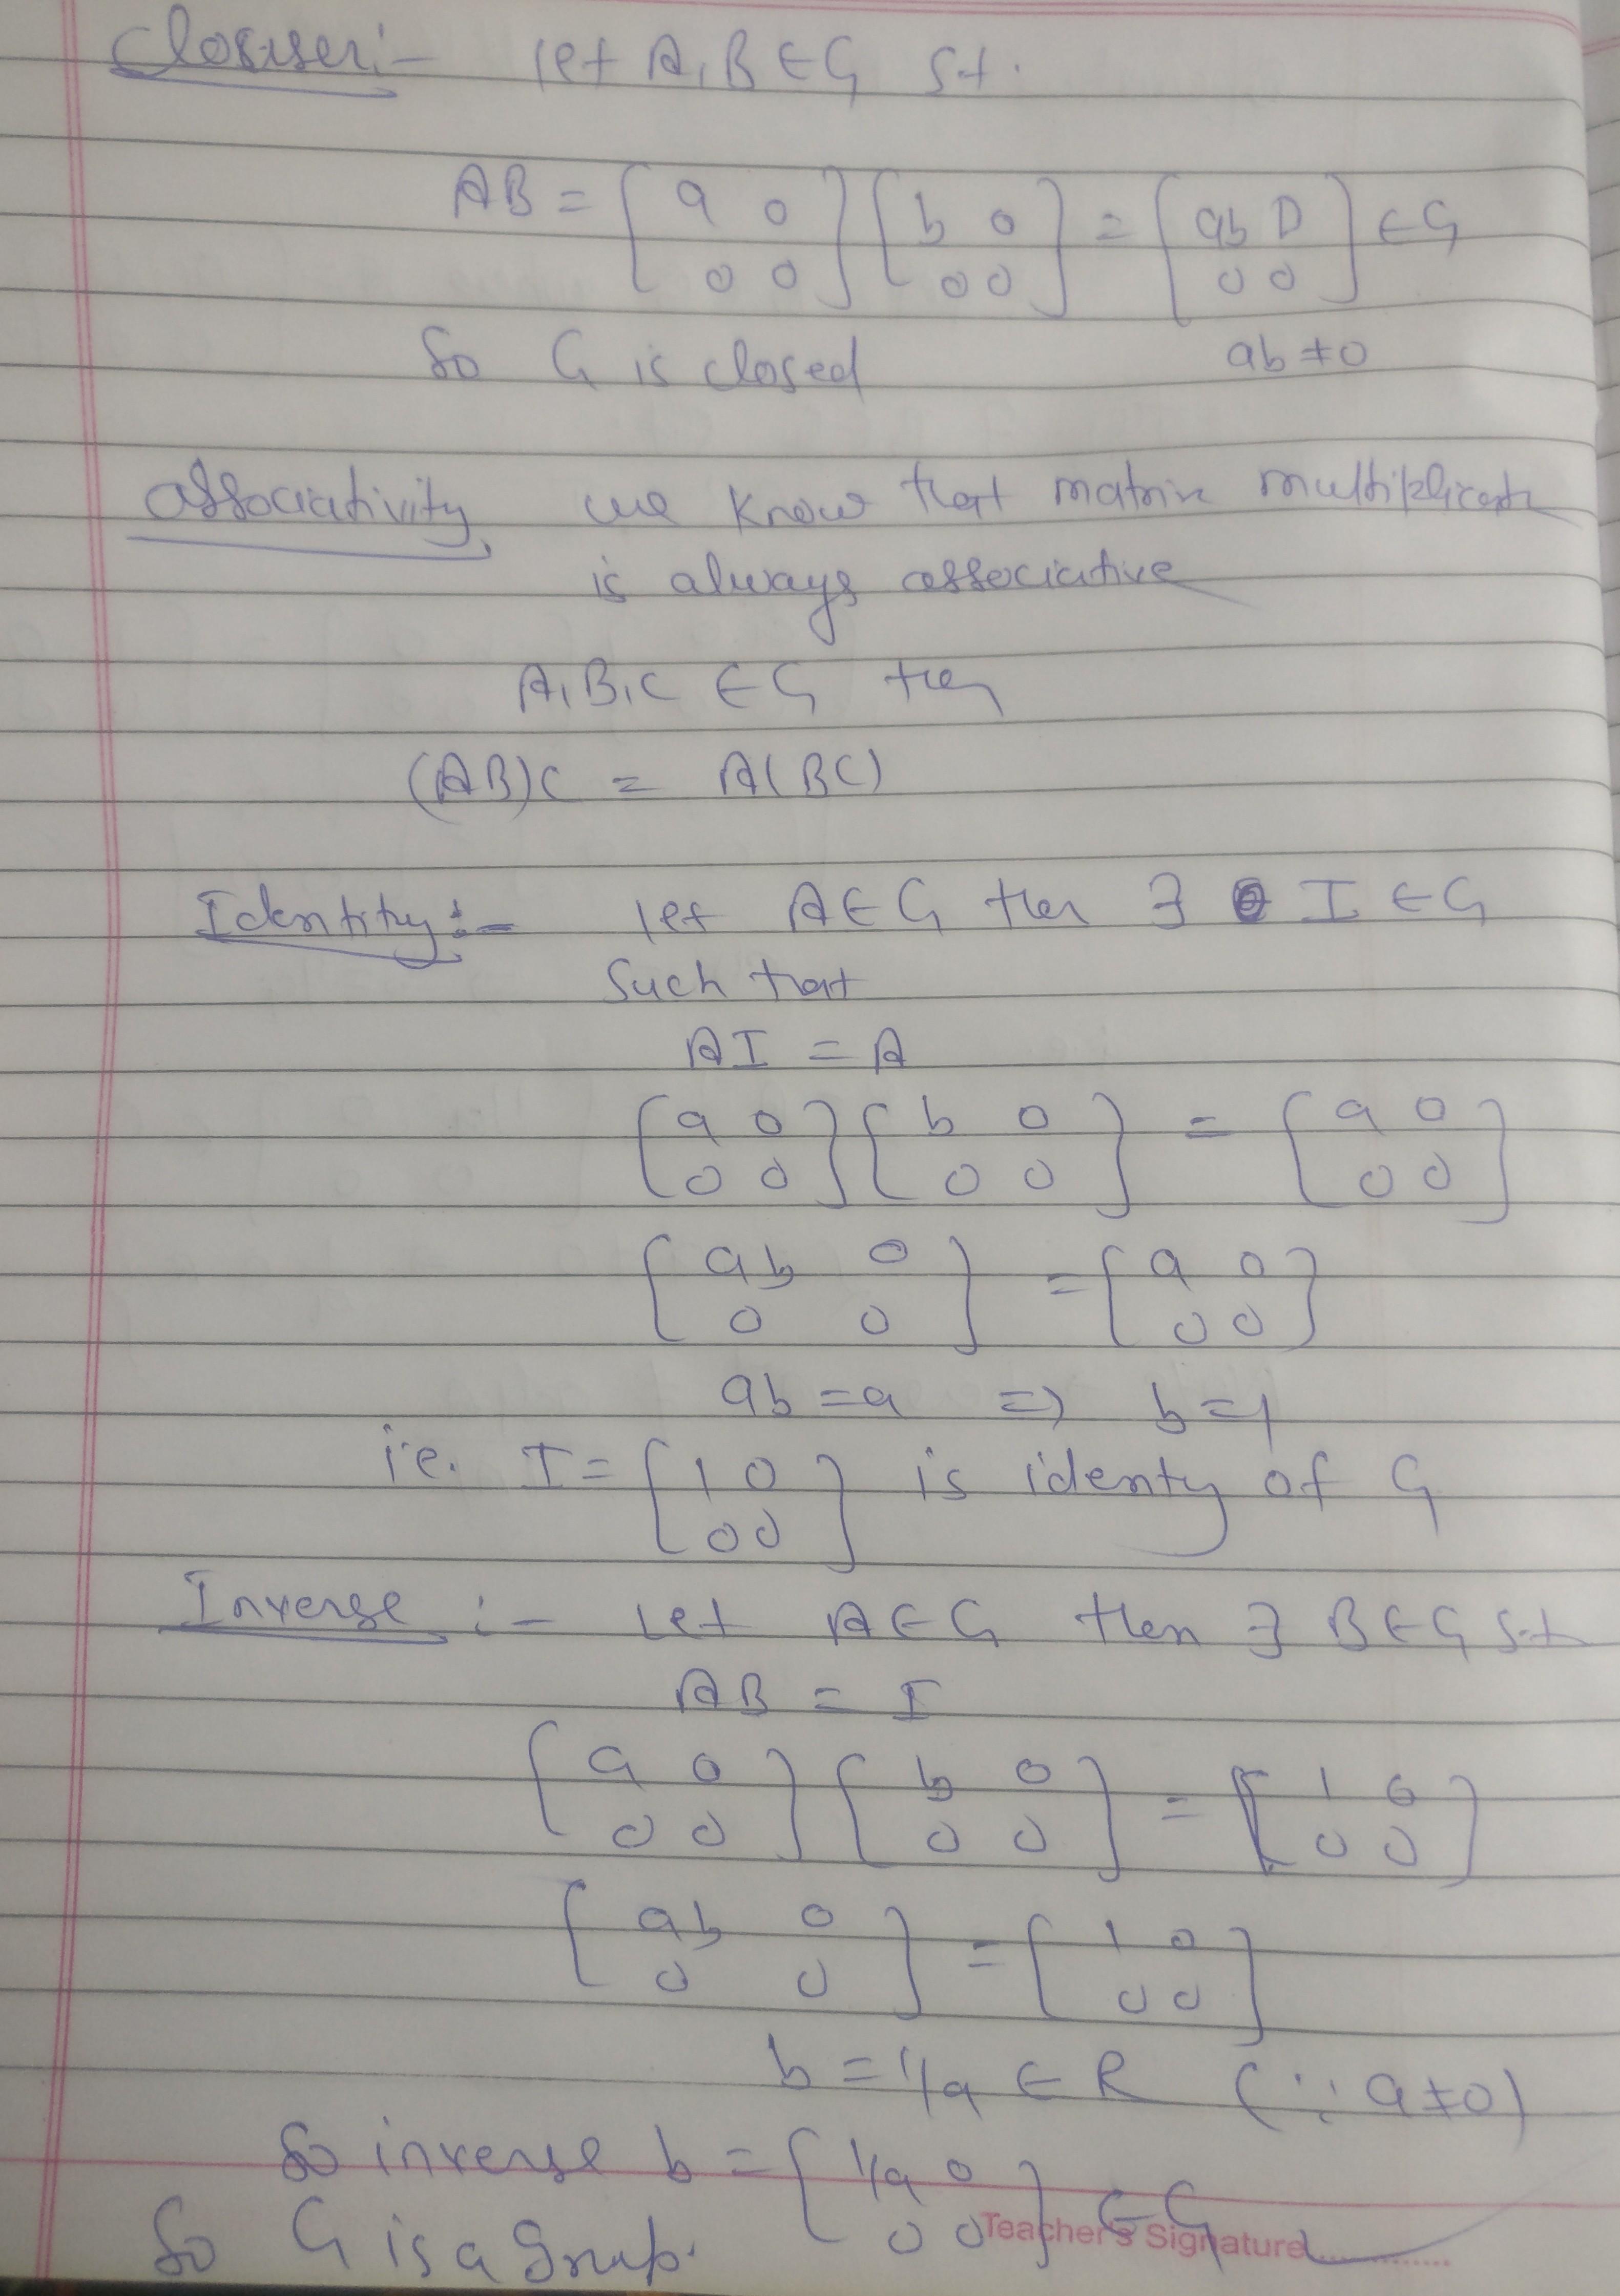 Closuer:- let A,B ∈ G s.t.
AB = [a 0; 0 0] [b 0; 0 0] = [ab 0; 0 0] ∈ G
So G is closed ab ≠ 0
associativity we know that matrix
is always associative
A,B,C ∈ G then
(AB)C = A(BC)
Identity:- let A ∈ G then ∃ I ∈ G
Such that
AI = A
[a 0; 0 0] [b 0; 0 0] = [a 0; 0 0]
[ab 0; 0 0] = [a 0; 0 0]
ab = a => b = 1
i.e. I = [1 0; 0 0] is identy of G
Inverse :- Let A ∈ G then ∃ B ∈ G s.t
AB = I
[a 0; 0 0] [b 0; 0 0] = [1 0; 0 0]
[ab 0; 0 0] = [1 0; 0 0]
b = 1/a ∈ R (∵ a ≠ 0)
So inverse b = [1/a 0; 0 0] ∈ G
Teacher's Signature..............
So G is a Group.